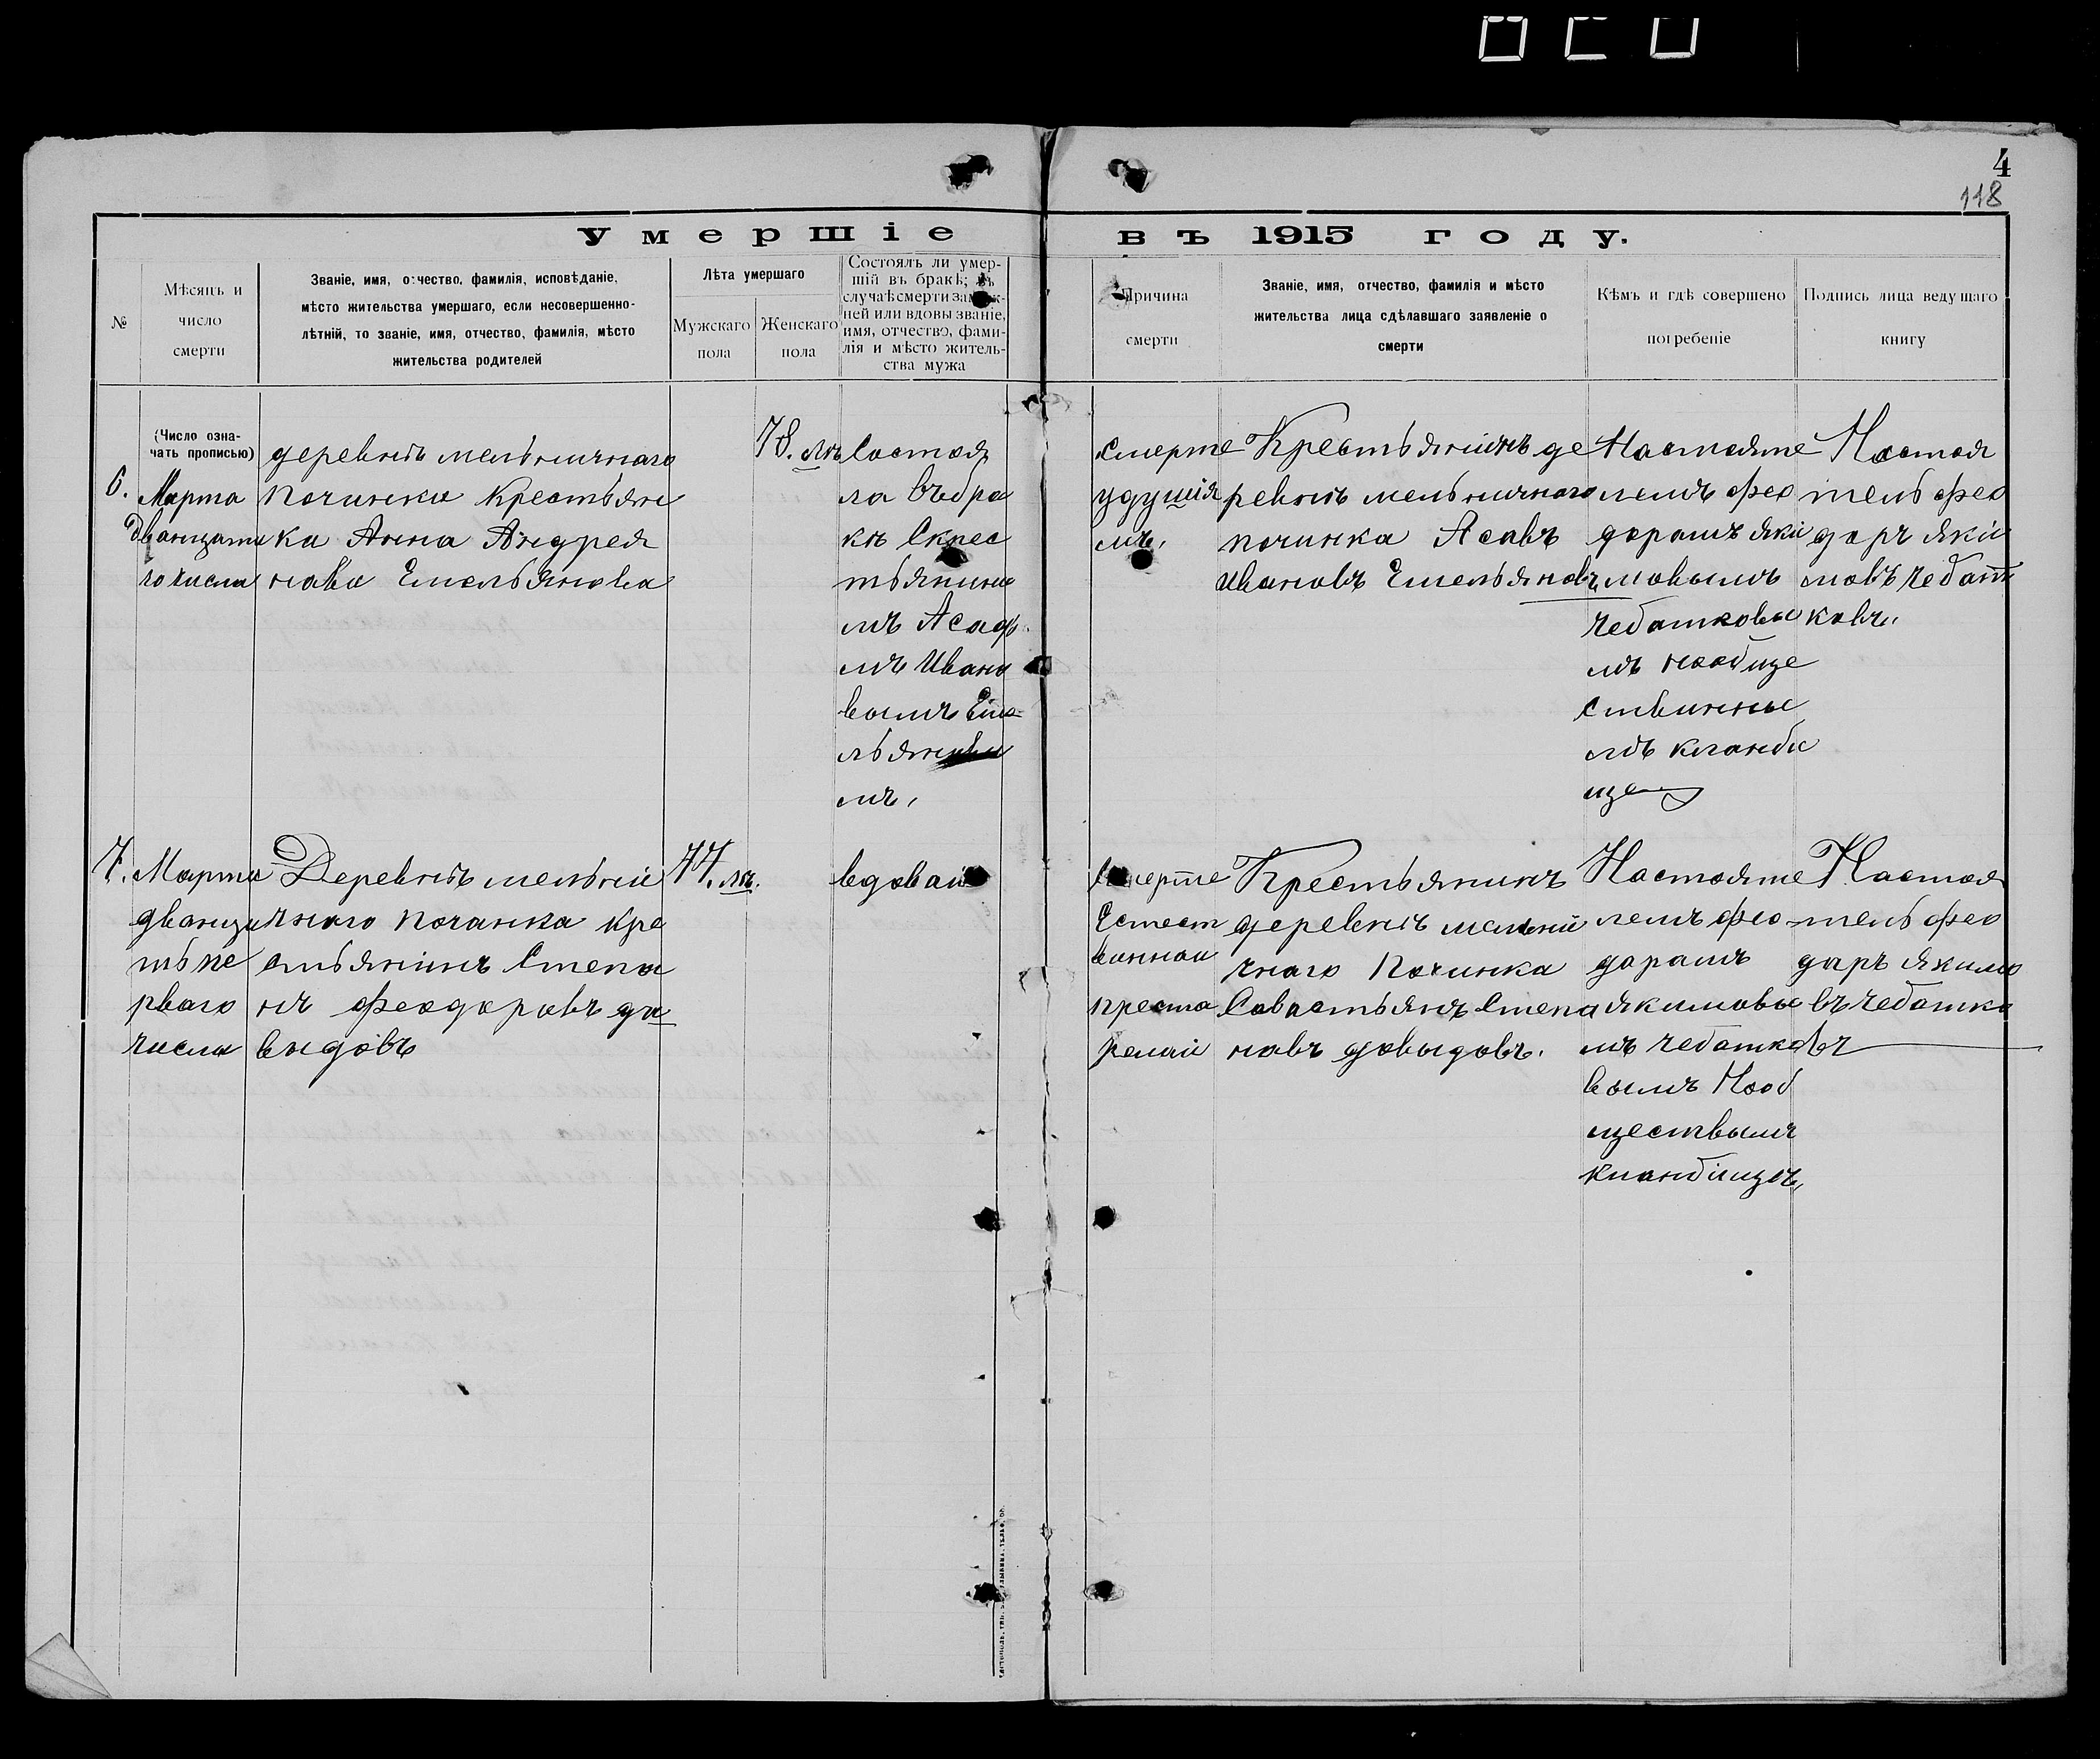 4
118
Умершіе въ 1915 году.
№
Мѣсяцъ и
число
смерти
Званіе, имя, отчество, фамилія, исповѣданіе,
мѣсто жительства умершаго, если несовершенно-
лѣтній, то званіе, имя, отчество, фамилія, мѣсто
жительства родителей
Лѣта умершаго
Мужскаго
пола
Женскаго
пола
Состоялъ ли умер-
шій въ бракѣ; въ
случаѣ смерти замуж-
ней или вдовы званіе,
имя, отчество, фами-
лія и мѣсто житель-
ства мужа
Причина
смерти
Званіе, имя, отчество, фамилія и мѣсто
жительства лица сдѣлавшаго заявленіе о
смерти
Кѣмъ и гдѣ совершено
погребеніе
Подпись лица ведущаго
книгу
(Число озна-
чать прописью)
6.
Марта
двацати
го числа
деревнѣ мельничнаго
починка крестьян
ка Анна Андрея
нова Емельянова
78. лѣ
Состоя
ла въ бра
кѣ Скрес
тьянино
мъ Асаф
мъ Ивано
вымъ Еме
льянавы
мъ,
Смерте
удушія
мъ,
Крестьянинъ де
ревнѣ мельничнаго
починка Асавъ
Ивановъ Емельяновъ,
Настояте
лемъ фео
дорамъ яки
мовымъ
чебатковы
мъ нообще
ствинны
мъ кланби
ще
Настоя
тель фео
доръ яки
мовъ чебат
ковъ,
7.
Марта
дванца
ть пе
рваго
числа
Деревнѣ мельни
чнаго починка кре
стьянинъ Степа
нъ феодоровъ да
выдовъ
77. лѣ.
вдовай
Смерте
Естест
виннаи
преста
релай
Крестьянинъ
деревнѣ мельни
чнаго Починка
Савастьянъ Степа
новъ довыдовъ.
Настояте
лемъ фео
дорамъ
якимовы
мъ чебатко
вымъ Нооб
ществымъ
кланбищѣ,
Настоя
тель фео
доръ якимо
въ чебатко
въ